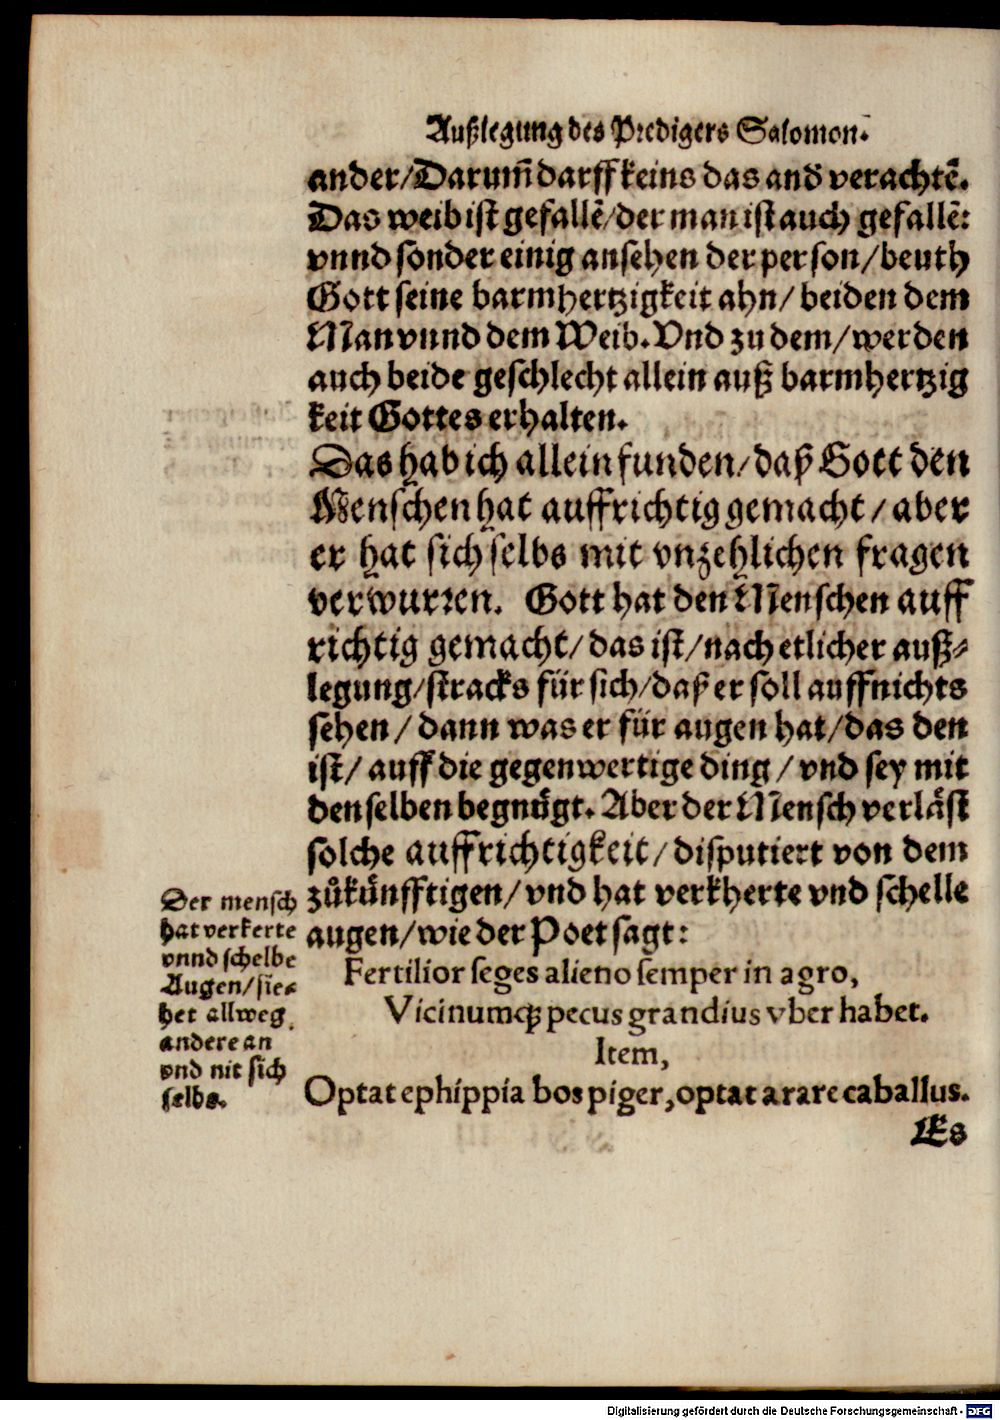 Außlegung des Predigers Salomon.
ander/Darum̃ darff keins das and̕ verachtẽ.
Das weib ist gefallẽ/der man ist auch gefallẽ:
vnnd sonder einig ansehen der person/beuth
Gott seine barmhertzigkeit ahn/ beiden dem
Man vnnd dem Weib. Vnd zu dem/werden
auch beide geschlecht allein auß barmhertzig
keit Gottes erhalten.
Das hab ich allein funden/daß Gott den
Menschen hat auffrichtig gemacht/aber
er hat sich selbs mit vnzehlichen fragen
verwurren. Gott hat den Menschen auff
richtig gemacht/das ist/nach etlicher auß⸗
legung/stracks für sich/daß er soll auff nichts
sehen/dann was er für augen hat/das den
ist/ auff die gegenwertige ding/vnd sey mit
denselben begnuͤgt. Aber der Mensch verlaͤst
solche auffrichtigkeit/disputiert von dem
zuͦkuͤnfftigen/vnd hat verkherte vnd schelle
augen/wie der Poet sagt:
Fertilior seges alieno semper in agro,
Vicinumq́ꝫ pecus grandius vber habet.
Item,
Optat ephippia bos piger, optat arare caballus.
Es
Der mensch
hat verkerte
vnnd schelbe
Augen/sie⸗
het allweg
andere an
vnd nit sich
selbs.
Digitalisierung gefördert durch die Deutsche Forschungsgemeinschaft - DFG